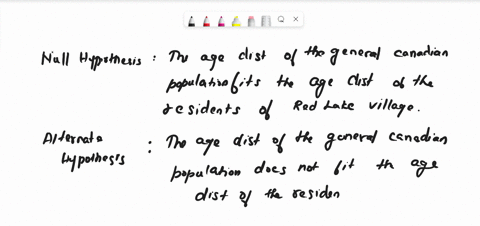 Null Hypothesis : The age dist of the general canadian
population fits the age dist of the
residents of Red Lake village.
Alternate
Hypothesis : The age dist of the general canadian
population does not fit th age
dist of the residen